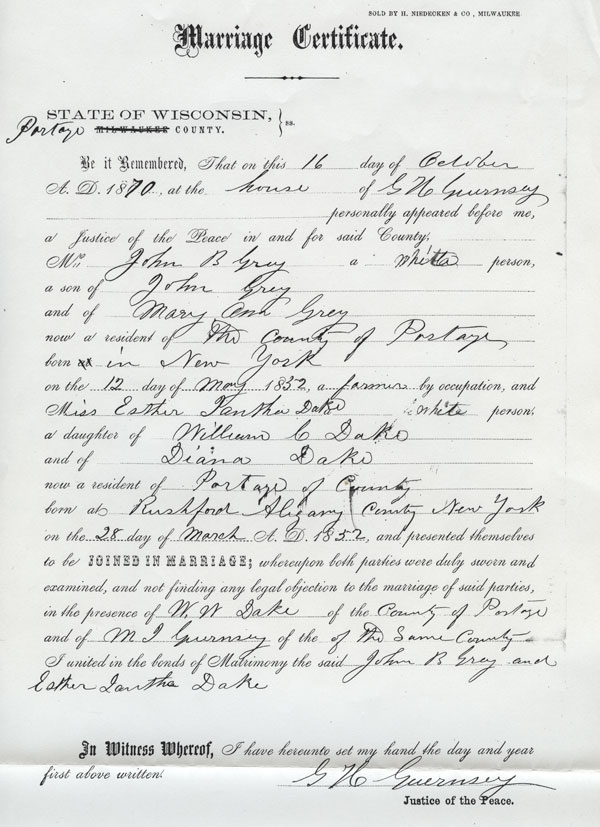 SOLD BY H. NIEDECKEN & CO., MILWAUKEE
Marriage Certificate.
STATE OF WISCONSIN,
Portage MILWAUKEE COUNTY. } ss.
Be it Remembered, That on this 16 day of October
A. D. 1870, at the house of G H Guernsey
personally appeared before me,
a Justice of the Peace in and for said County,
Mr. John B Grey a white person,
a son of John Grey
and of Mary Ann Grey
now a resident of The County of Portage
born in New York
on the 12 day of May 1832, a farmer by occupation, and
Miss Esther Iantha Dake white person,
a daughter of William C Dake
and of Diana Dake
now a resident of Portage of County
born at Rushford Aligany County New York
on the 28 day of March A. D. 1852, and presented themselves
to be JOINED IN MARRIAGE; whereupon both parties were duly sworn and
examined, and not finding any legal objection to the marriage of said parties,
in the presence of W. W Dake of the County of Portage
and of M I Guernsey of the of The Same County
I united in the bonds of Matrimony the said John B Grey and
Esther Iantha Dake
In Witness Whereof, I have hereunto set my hand the day and year
first above written.
G H Guernsey
Justice of the Peace.